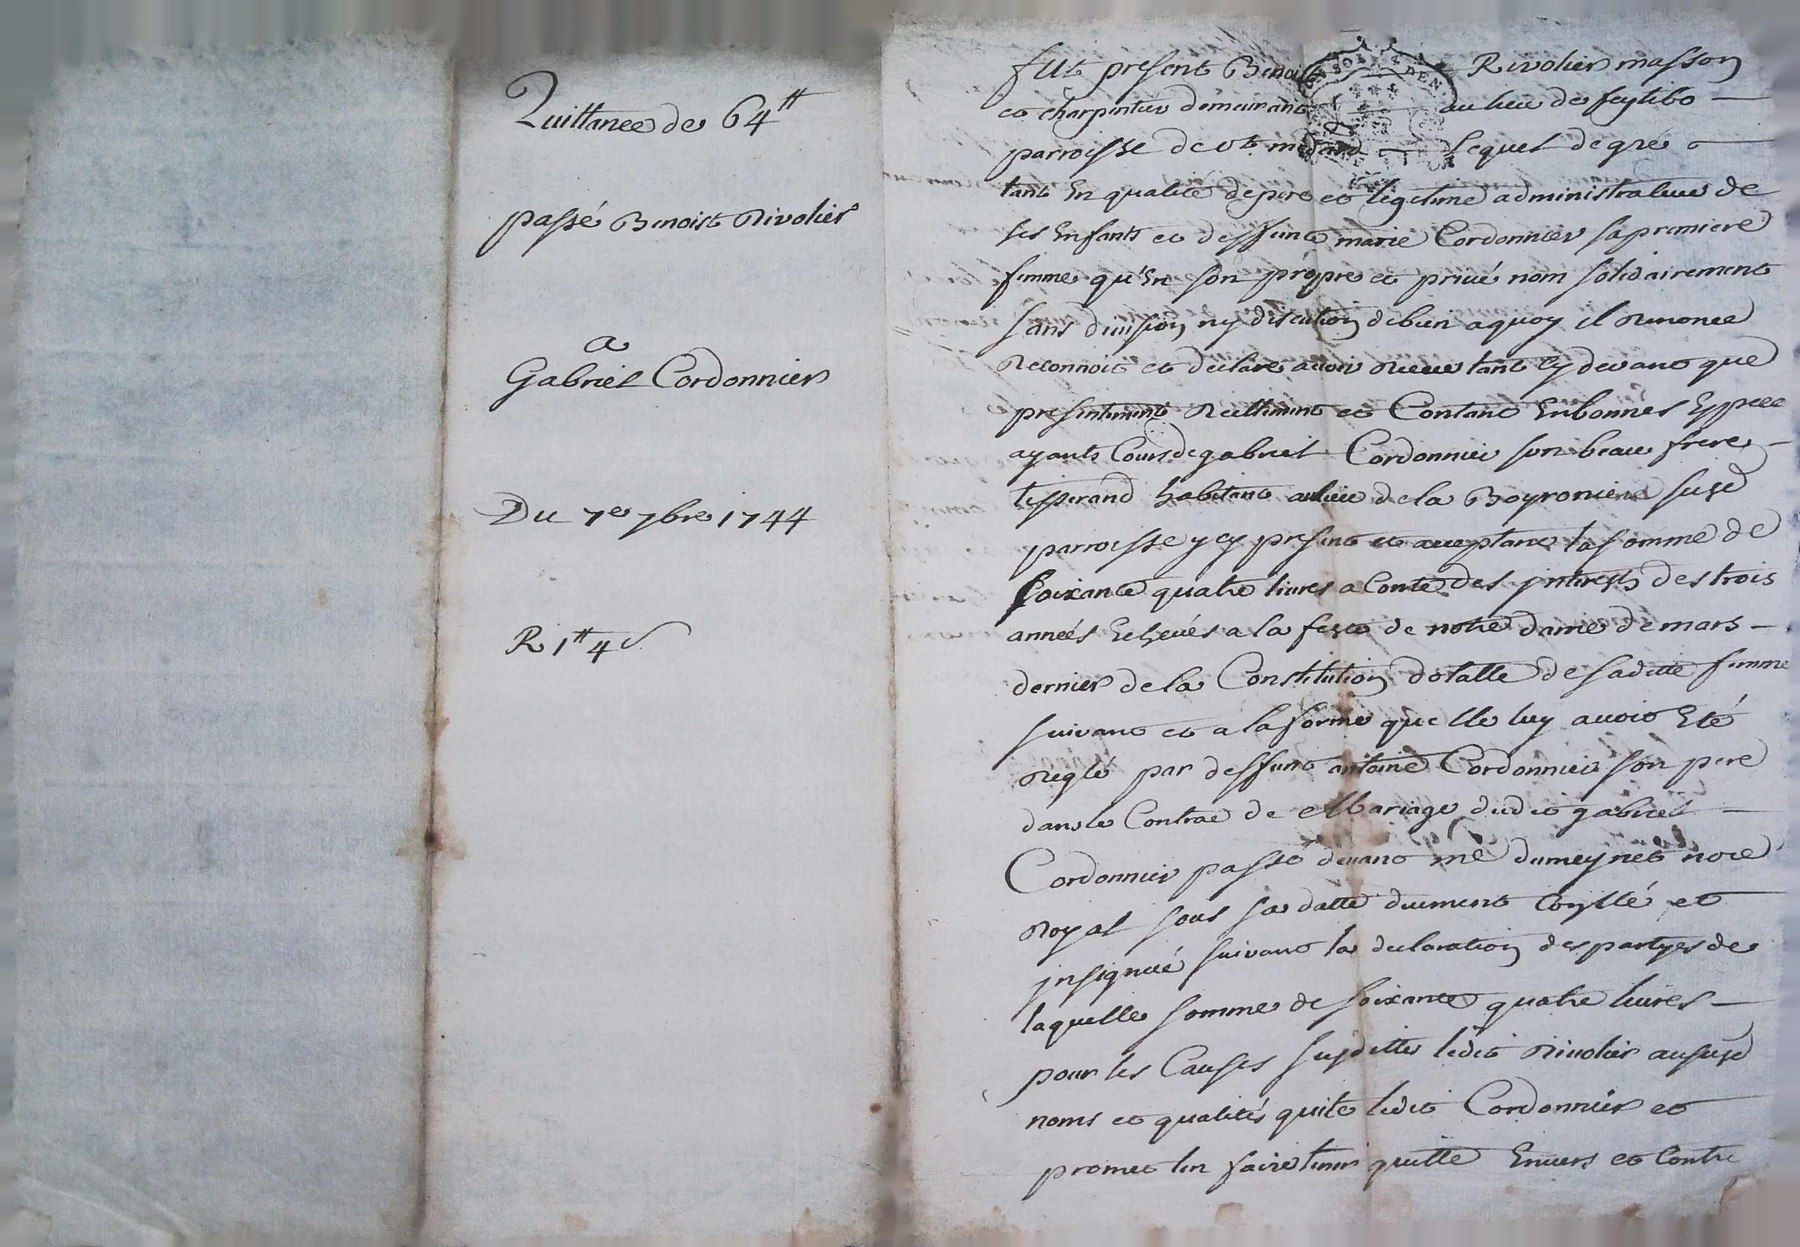 Quittance de 64tt
passé Benoist Rivolier
a
Gabriel Cordonnier
Du 7e 7bre 1744
R 1tt 4s
fut present Benoist Rivolier masson
et charpentier demeurant au lieu de feytibo
parroisse de st medard lequel de gré
tant En qualité de pere et legitime administrateur de
ses Enfants et deffunte marie Cordonnier sa premiere
femme qu'En son propre et privé nom solidairement
sans division ny discution de bien a quoy il Renonce
Reconnoit et declare avoir Receu tant Cy devant que
presentement Reellement et Contant En bonnes Espece
ayants Cours de gabriel Cordonnier son beau frere
tisserand habitant au lieu de la Beyroniere susd
parroisse y cy present et acceptant la somme de
soixante quatre livres a Conte des jnterests des trois
années Echeües a la feste de notre dame de mars
dernier de la Constitution dotalle de saditte femme
suivant et a la forme quelle luy avoit Eté
Reglé par deffunt antoine Cordonnier son pere
dans le Contrat de Mariage dudit gabriel
Cordonnier passé devant me dumeynet nore
Royal sous sa datte duement Conllé et
jnsignué suivant la declaration des partyes de
laquelle somme de soixante quatre livres
pour les Causes susditte ledit Rivolier au susd
noms et qualités quite ledit Cordonnier et
promet len faire tenir quitte Envers et Contre